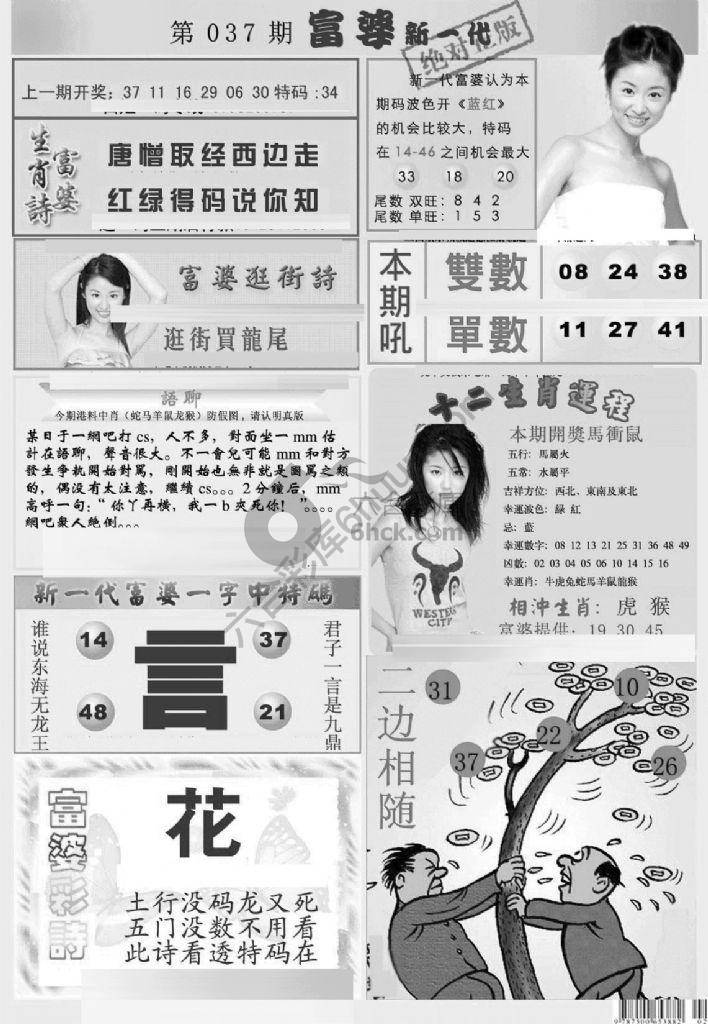 第 037 期 富婆 新一代
绝对正版
上一期开奖：37 11 16 29 06 30 特码：34
生肖詩
富婆
唐憎取经西边走
红绿得码说你知
新一代富婆认为本
期码波色开《蓝红》
的机会比较大，特码
在 14-46 之间机会最大
33 18 20
尾数 双旺：8 4 2
尾数 单旺：1 5 3
富婆逛街詩
逛街買龍尾
本期吼
雙數 08 24 38
單數 11 27 41
語聊
今期港料中肖（蛇马羊鼠龙猴）防假图，请认明真版
某日于一網吧打cs，人不多，對面坐一mm估
計在語聊，聲音很大。不一會兒可能mm和對方
發生爭執開始對罵，剛開始也無非就是圖罵之類
的，偶没有太注意，繼續cs。。。2分鐘后，mm
高呼一句：“你丫再橫，我一b夾死你！”。。。。
網吧衆人絶倒。。。
十二生肖運程
本期開獎馬衝鼠
五行：馬屬火
五常：水屬平
吉祥方位：西北、東南及東北
幸運波色：緑 紅
忌：藍
幸運數字：08 12 13 21 25 31 36 48 49
凶數：02 03 04 05 06 10 14 15 16
幸運肖：牛虎兔蛇馬羊鼠龍猴
相沖生肖：虎 猴
富婆提供：19 30 45
WESTERN
CITY
新一代富婆一字中特碼
谁说东海无龙王
14 37
言
48 21
君子一言是九鼎
二边相随
31 10
22
37 26
富婆彩詩
花
土行没码龙又死
五门没数不用看
此诗看透特码在
六合彩库6huu.com
6hck.com
9787300653882 02